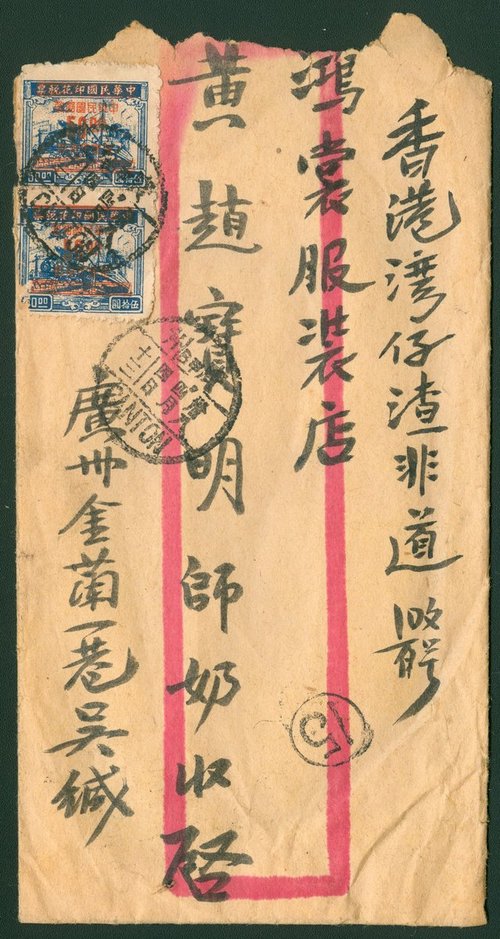 香港湾仔渣非道
鴻裳服裝店
黃趙寶明師奶收啓
廣州金蘭一巷吴緘
中華民國印花稅票
50.00
伍拾圓
中華民國印花稅票
50.00
伍拾圓
CANTON
15